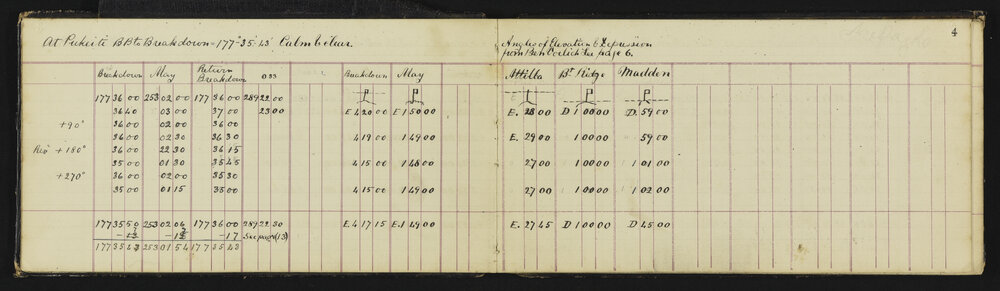 4
At Pukeite BB to Breakdown = 177° 35' 43" Calm & clear.
Angles of Elevation & Depression
from Ben page 6.
Breakdown May Return Breakdown 033 Breakdown May Attilla Bt Ridge Madden
177 36 00 253 02 00 177 36 00 289 22 00
36 40 03 00 37 00 23 00 E 4 20 00 E 1 50 00 E. 28 00 D 1 00 00 D. 59 00
+90° 36 00 02 00 36 00
36 00 02 30 36 30 4 19 00 1 49 00 E. 29 00 1 00 00 59 00
Rev + 180° 36 00 22 30 36 15
35 00 01 30 35 45 4 15 00 1 48 00 27 00 1 00 00 1 01 00
+270° 36 00 02 00 35 30
35 00 01 15 35 00 4 15 00 1 49 00 27 00 1 00 00 1 02 00
177 35 50 253 02 06 177 36 00 289 22 30 E. 4 17 15 E. 1 49 00 E. 27 45 D 1 00 00 D 45 00
-12 -17 See page (13)
177 35 43 253 01 54 177 35 43